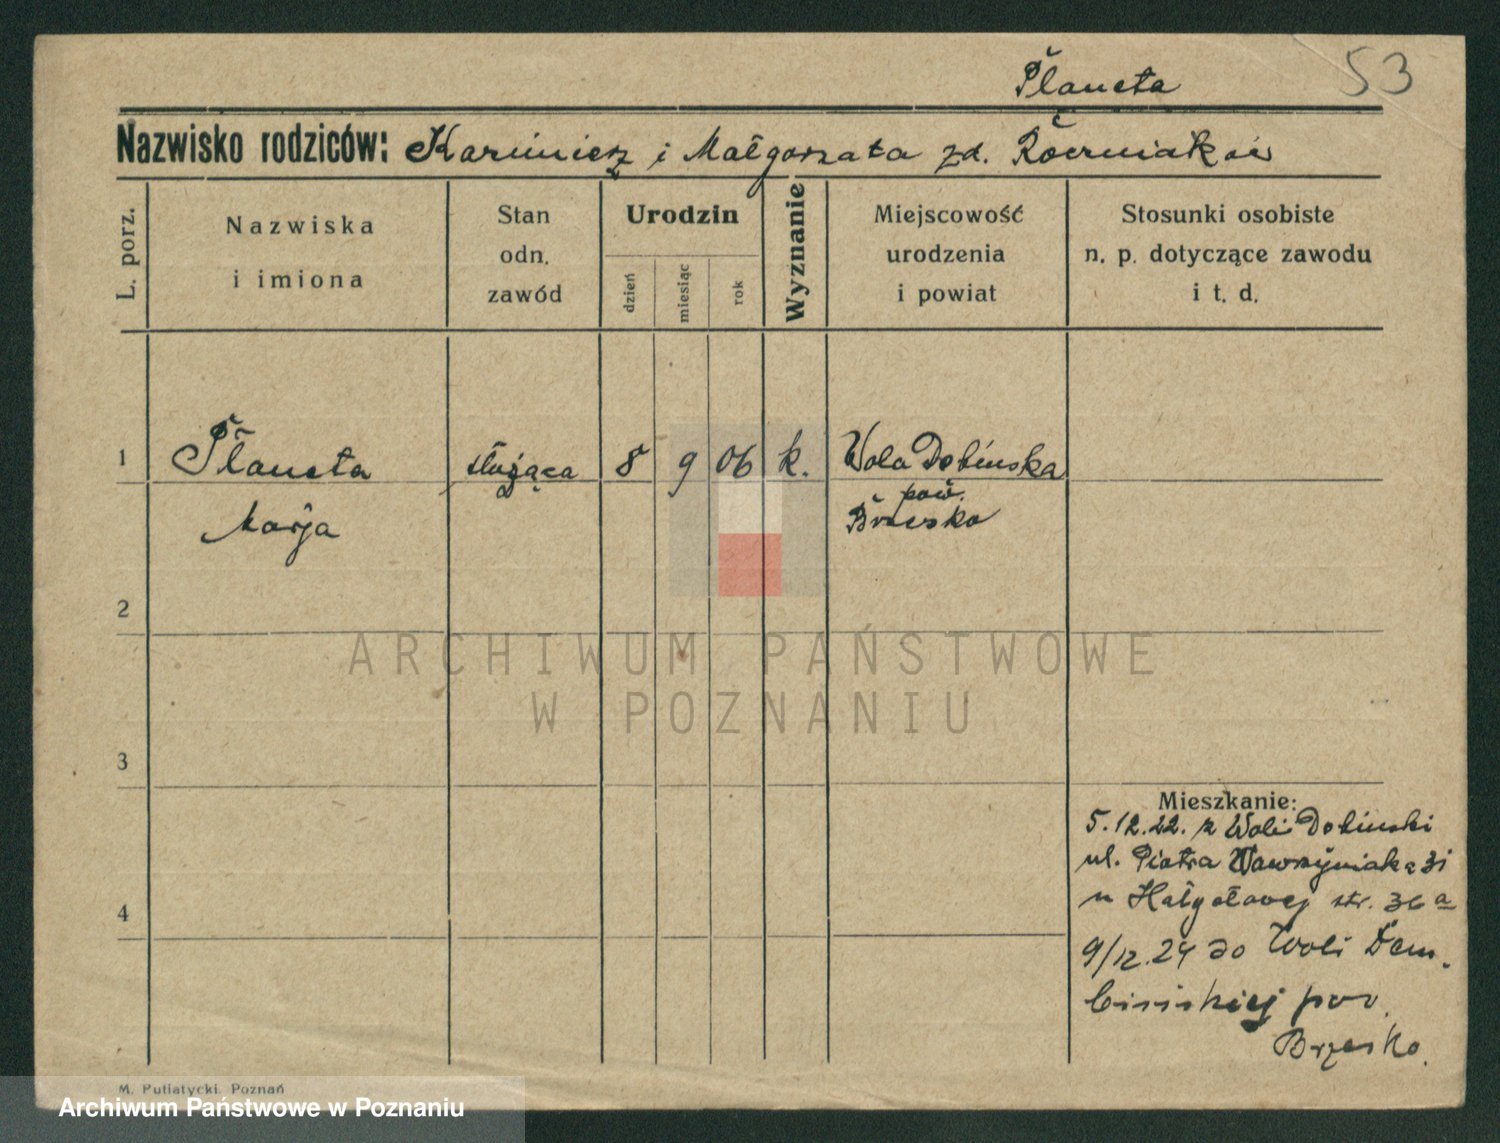 Planeta 53
Nazwisko rodziców: Kazimierz i Małgorzata zd.
L. porz.
Nazwiska i imiona
Stan odn. zawód
Urodzin
dzień
miesiąc
rok
Wyznanie
Miejscowość urodzenia i powiat
Stosunki osobiste n. p. dotyczące zawodu i t. d.
1 Planeta służąca 8 9 06 k. Wola Dobińska
Marja
pow.
Brzesko
2
3
4
Mieszkanie:
5.12.22. z Woli Dobinski
ul. Piotra Wawrzyniaka 31
u str. 36a
9/12.24 do Woli Dem-
bińskiej pow.
Brzesko.
ARCHIWUM PAŃSTWOWE
W POZNANIU
M. Putiatycki, Poznań
Archiwum Państwowe w Poznaniu